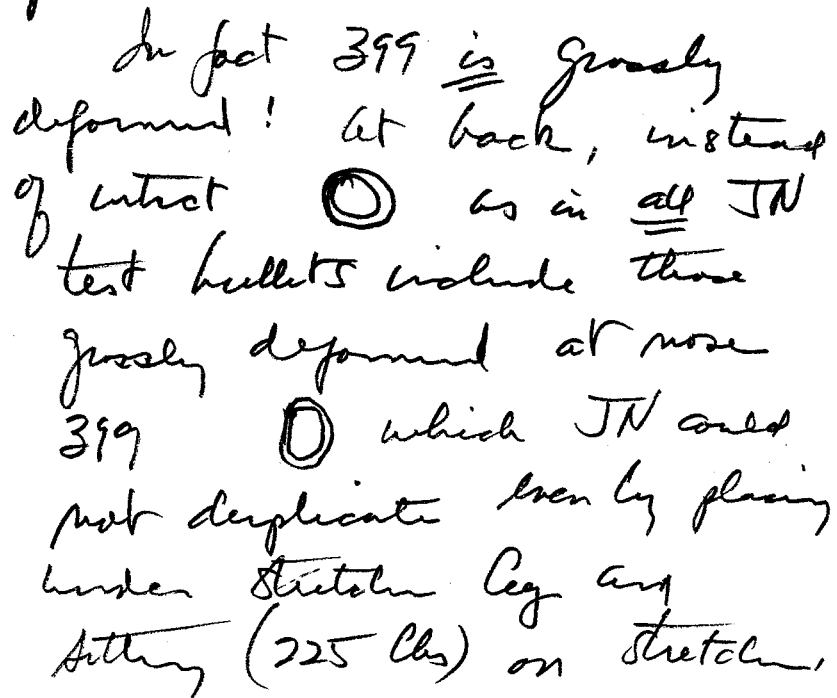 In fact 399 is grossly
deformed! At back, instead
of intact as in all JN
test bullets include those
grossly deformed at nose
399 which JN could
not duplicate even by placing
under stretcher leg and
sitting (225 lbs) on stretcher.